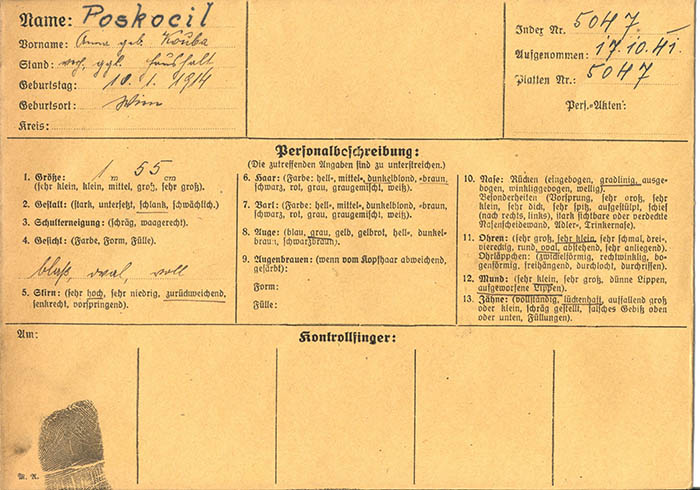 Name: Poskocil
Vorname: Anna geb. Kouba
Stand: verh. ggl. Haushalt
Geburtstag: 10. 1. 1914
Geburtsort: Wien
Kreis:
Index Nr. 5047
Aufgenommen: 17.10.41.
Platten Nr.: 5047
Pers.-Akten:
Personalbeschreibung:
(Die zutreffenden Angaben sind zu unterstreichen.)
1. Größe: 1 m 55 cm
(sehr klein, klein, mittel, groß, sehr groß).
2. Gestalt: (stark, untersetzt, schlank, schwächlich.)
3. Schulterneigung: (schräg, waagerecht.)
4. Gesicht: (Farbe, Form, Fülle).
blaß, oval, voll
5. Stirn: (sehr hoch, sehr niedrig, zurückweichend,
senkrecht, vorspringend).
6. Haar: (Farbe: hell-, mittel-, dunkelblond, -braun,
schwarz, rot, grau, graugemischt, weiß).
7. Bart: (Farbe: hell-, mittel-, dunkelblond, -braun,
schwarz, rot, grau, graugemischt, weiß).
8. Auge: (blau, grau, gelb, gelbrot, hell-, dunkel-
braun, schwarzbraun).
9. Augenbrauen: (wenn vom Kopfhaar abweichend,
gefärbt):
Form:
Fülle:
10. Nase: Rücken (eingebogen, gradlinig, ausge-
bogen, winkliggebogen, wellig).
Besonderheiten (Vorsprung, sehr groß, sehr
klein, sehr dick, sehr spitz, aufgestülpt, schief
(nach rechts, links), stark sichtbare oder verdeckte
Nasenscheidewand, Adler-, Trinkernase).
11. Ohren: (sehr groß, sehr klein, sehr schmal, drei-
viereckig, rund, oval, abstehend, sehr anliegend).
Ohrläppchen: (zwickelförmig, rechtwinklig, bo-
genförmig, freihängend, durchlocht, durchrissen).
12. Mund: (sehr klein, sehr groß, dünne Lippen,
aufgeworfene Lippen).
13. Zähne: (vollständig, lückenhaft, auffallend groß
oder klein, schräg gestellt, falsches Gebiß oben
oder unten, Füllungen).
Am:
Kontrollfinger: